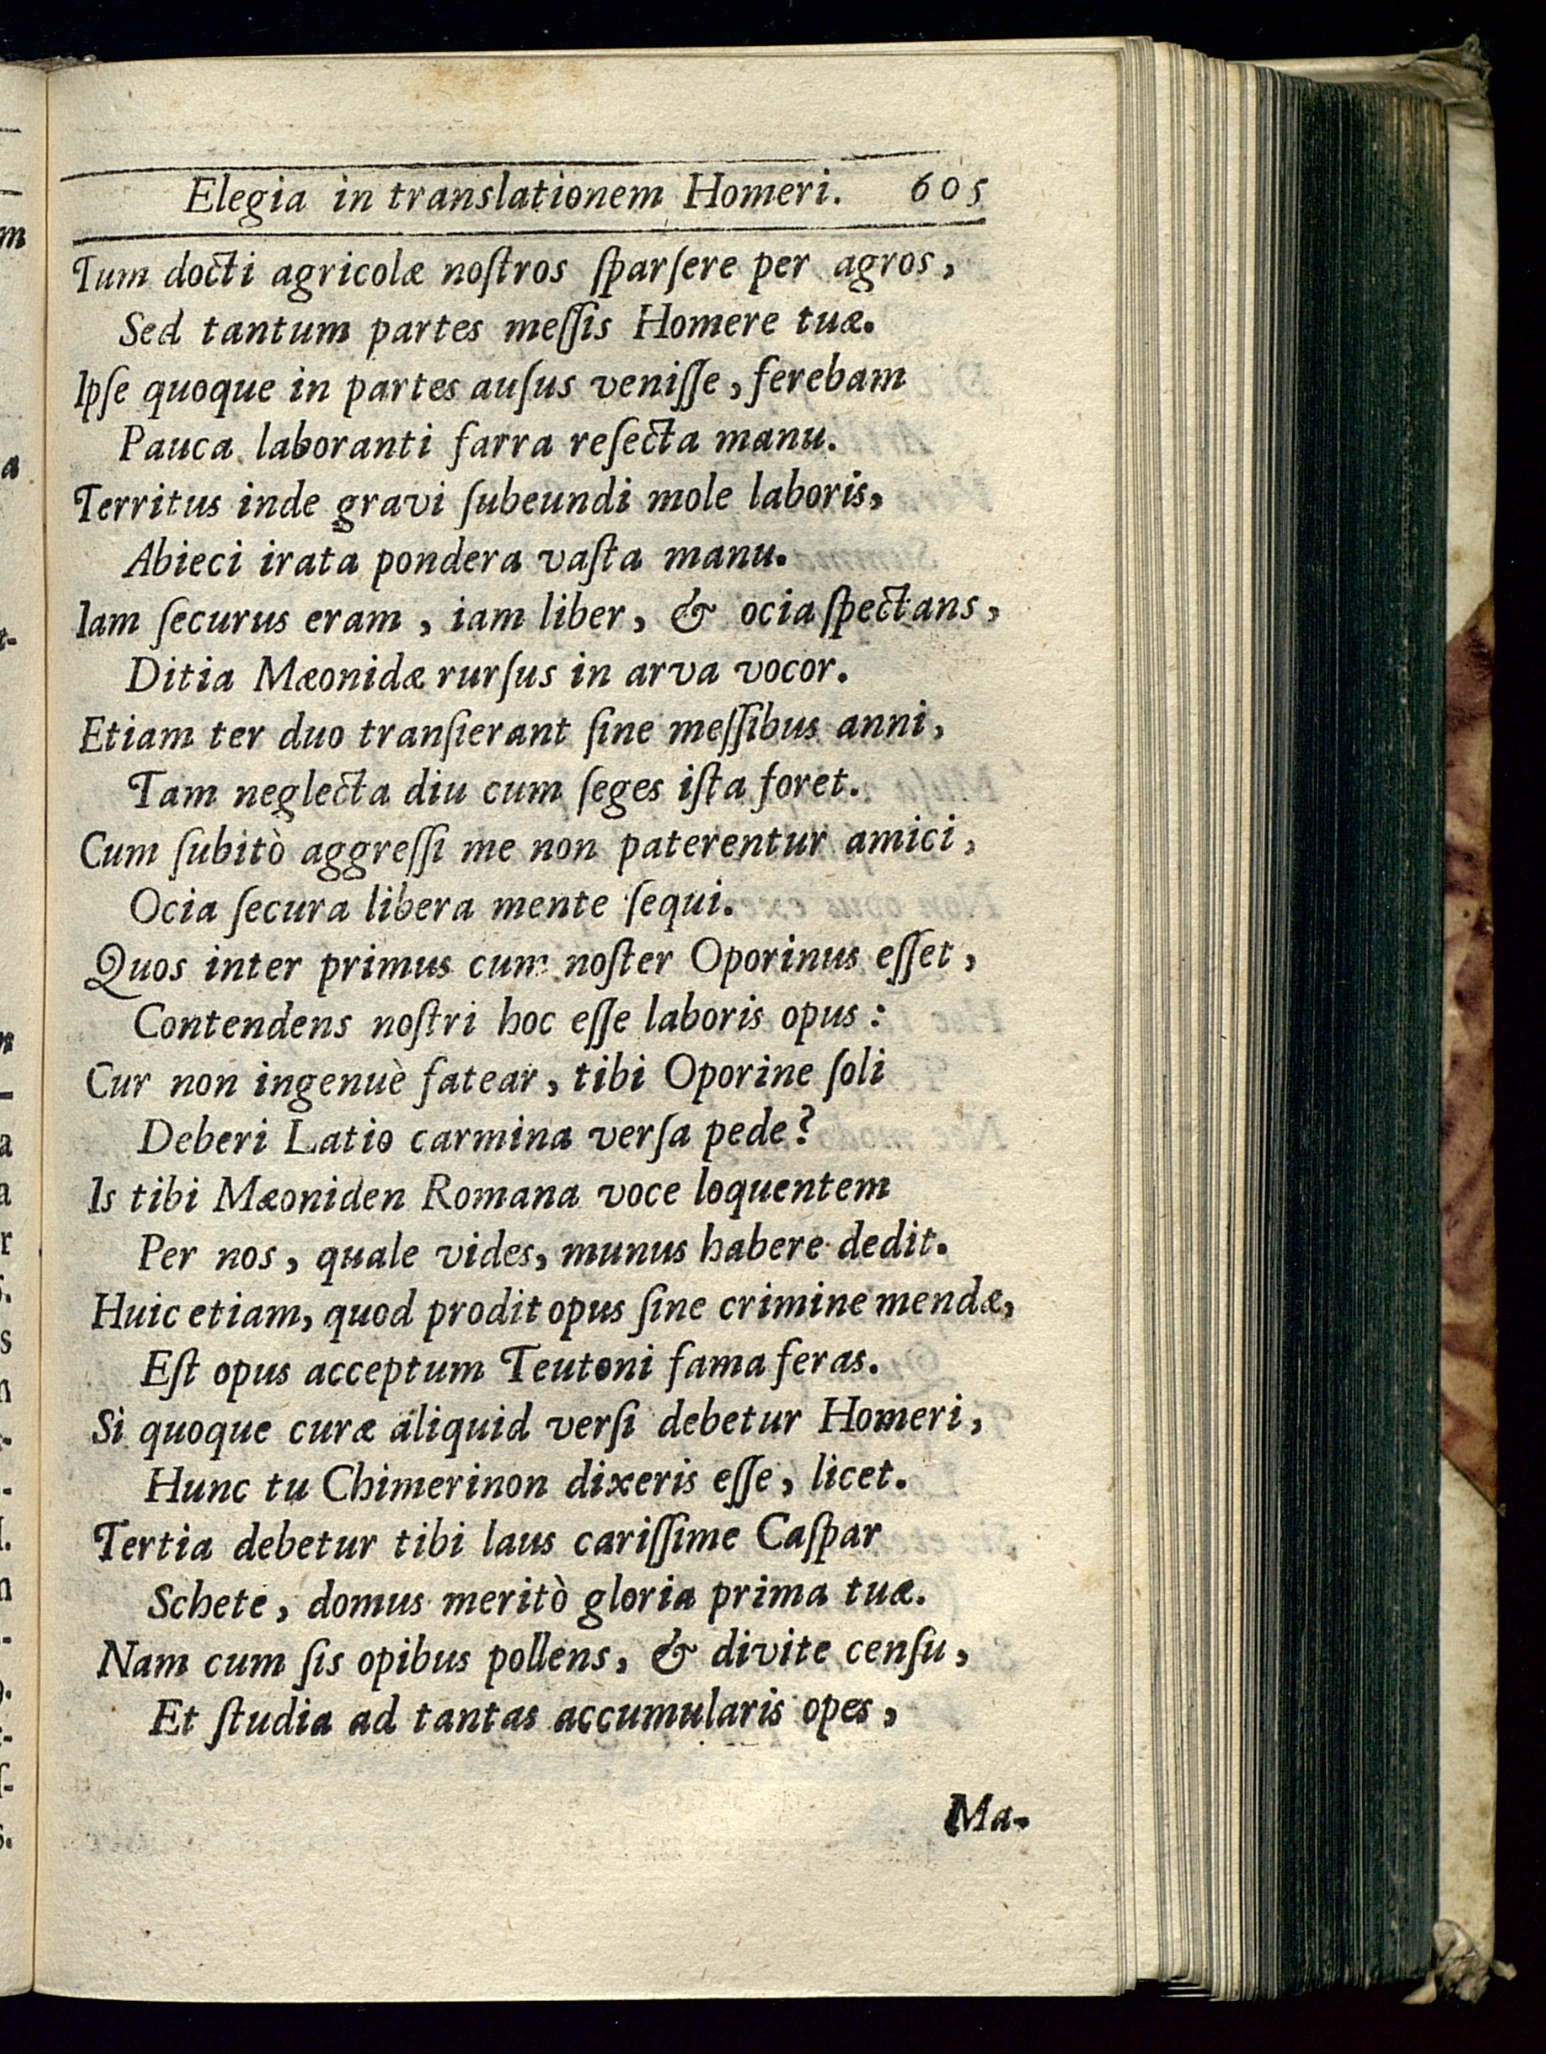 Elegia in translationem Homeri. 605
Tum docti agricolæ noſtros ſparſere per agros,
Sed tantum partes meſſis Homere tuæ.
Ipſe quoque in partes auſus veniſſe, ferebam
Pauca laboranti farra reſecta manu.
Territus inde gravi ſubeundi mole laboris,
Abieci irata pondera vaſta manu.
Iam ſecurus eram, iam liber, & ocia ſpectans,
Ditia Mæonidæ rurſus in arva vocor.
Etiam ter duo tranſierant ſine meſſibus anni,
Tam neglecta diu cum ſeges iſta foret.
Cum ſubitò aggreſſi me non paterentur amici,
Ocia ſecura libera mente ſequi.
Quos inter primus cum noſter Oporinus eſſet,
Contendens noſtri hoc eſſe laboris opus:
Cur non ingenuè fatear, tibi Oporine ſoli
Deberi Latio carmina verſa pede?
Is tibi Mæoniden Romana voce loquentem
Per nos, quale vides, munus habere dedit.
Huic etiam, quod prodit opus ſine crimine mendæ,
Eſt opus acceptum Teutoni fama feras.
Si quoque curæ aliquid verſi debetur Homeri,
Hunc tu Chimerinon dixeris eſſe, licet.
Tertia debetur tibi laus cariſſime Caſpar
Schete, domus meritò gloria prima tuæ.
Nam cum ſis opibus pollens, & divite cenſu,
Et ſtudia ad tantas accumularis opes,
Ma-